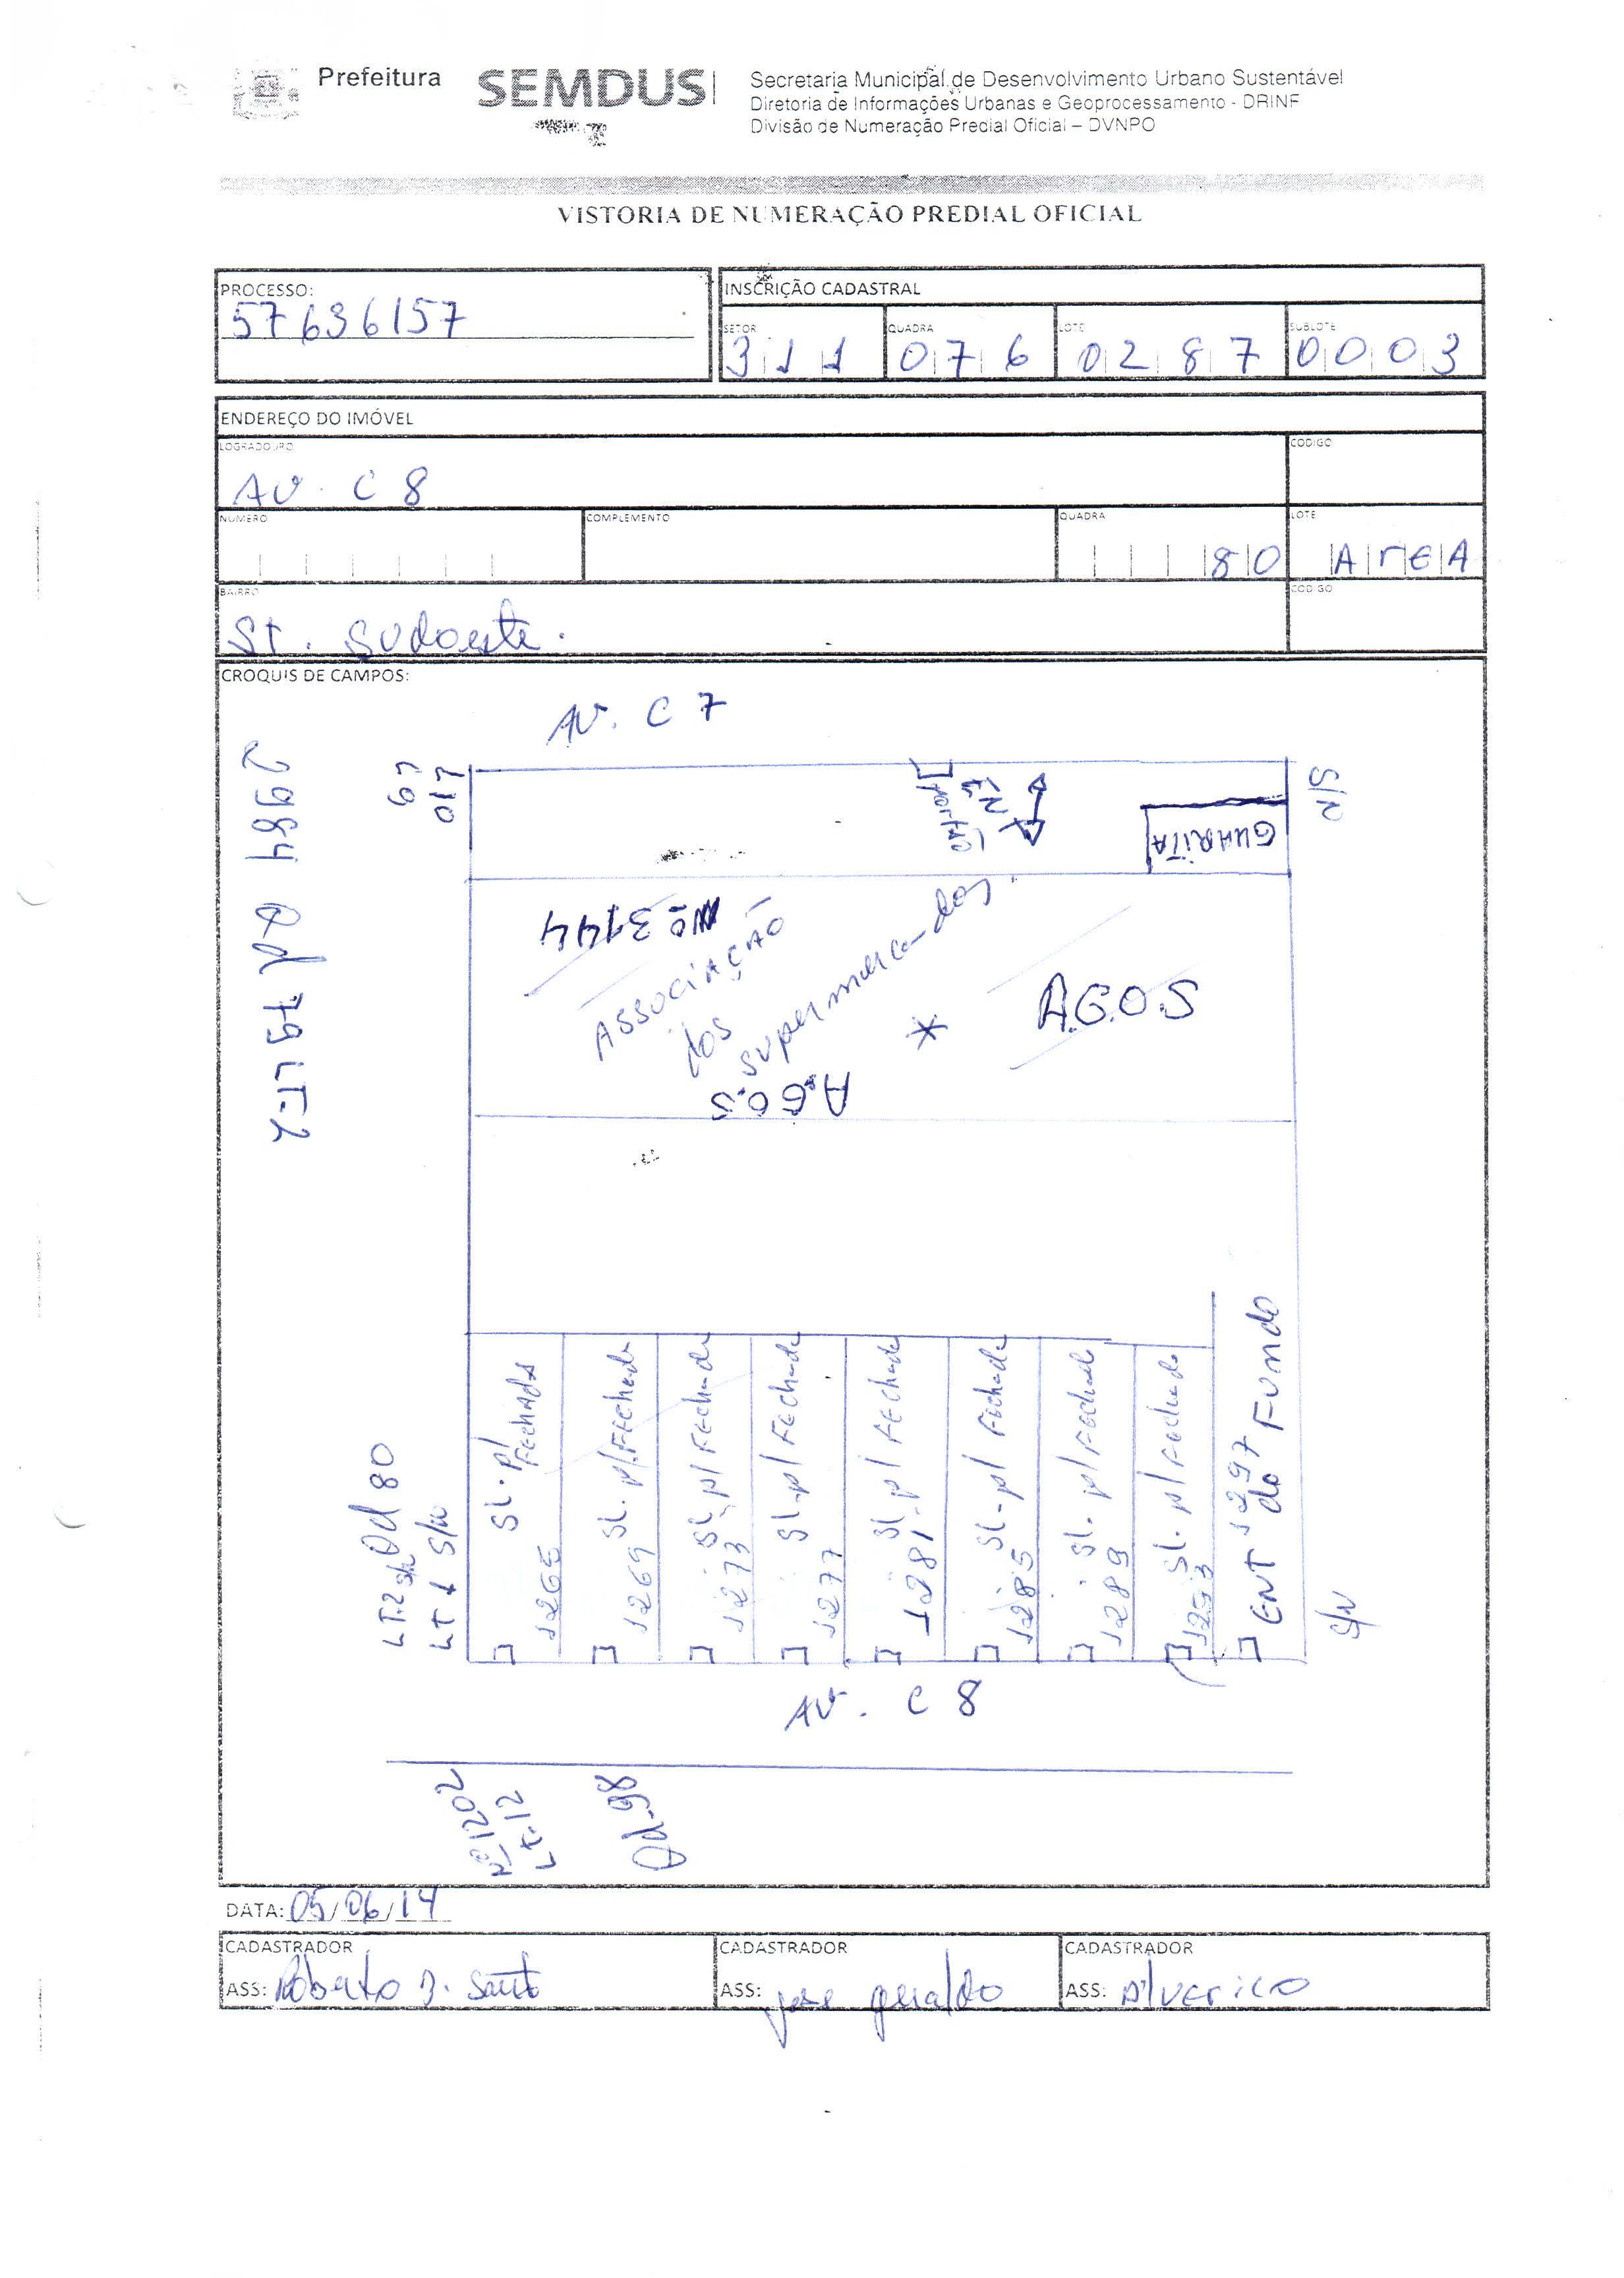 Prefeitura
SEMDUS
Secretaria Municipal de Desenvolvimento Urbano Sustentável
Diretoria de Informações Urbanas e Geoprocessamento - DRINF
Divisão de Numeração Predial Oficial – DVNPO
VISTORIA DE NUMERAÇÃO PREDIAL OFICIAL
PROCESSO:
57636157
INSCRIÇÃO CADASTRAL
SETOR
311
QUADRA
076
LOTE
0287
SUBLOTE
0003
ENDEREÇO DO IMÓVEL
LOGRADOURO
AV. C 8
CODIGO
NUMERO
COMPLEMENTO
QUADRA
80
LOTE
ArEA
BAIRRO
ST. Sudoeste.
CODIGO
CROQUIS DE CAMPOS:
AV. C 7
2984 Qd 79 LT-2
S/N
portão
GUARITA
Nº 3144
ASSOCIAÇÃO
dos
supermercados
*
A.G.O.S
A.G.O.S
Qd 80
LT.2 S/N
LT 1 S/N
SL. p/ FEchada
1265
SL. p/ FEchada
1269
SL p/ FEchada
1273
SL. p/ FEchada
1277
SL. p/ FEchada
1281
SL. p/ FEchada
1285
SL. p/ FEchada
1289
SL. p/ FEchada
1293
ENT 1297
do Fundo
S/N
AV. C 8
Nº 1202
LT. 12
Qd. 98
DATA: 05/06/14
CADASTRADOR
ASS: Roberto J. Santo
CADASTRADOR
ASS: jose geraldo
CADASTRADOR
ASS: Alverico